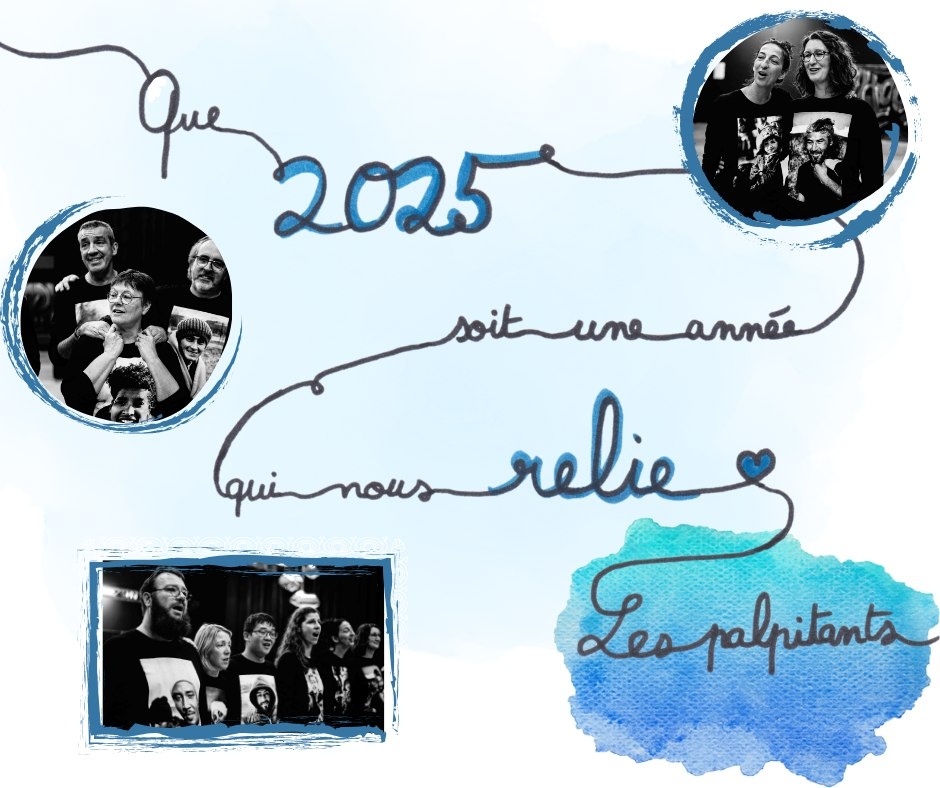 Que
2025
soit une année
qui nous relie
Les palpitants